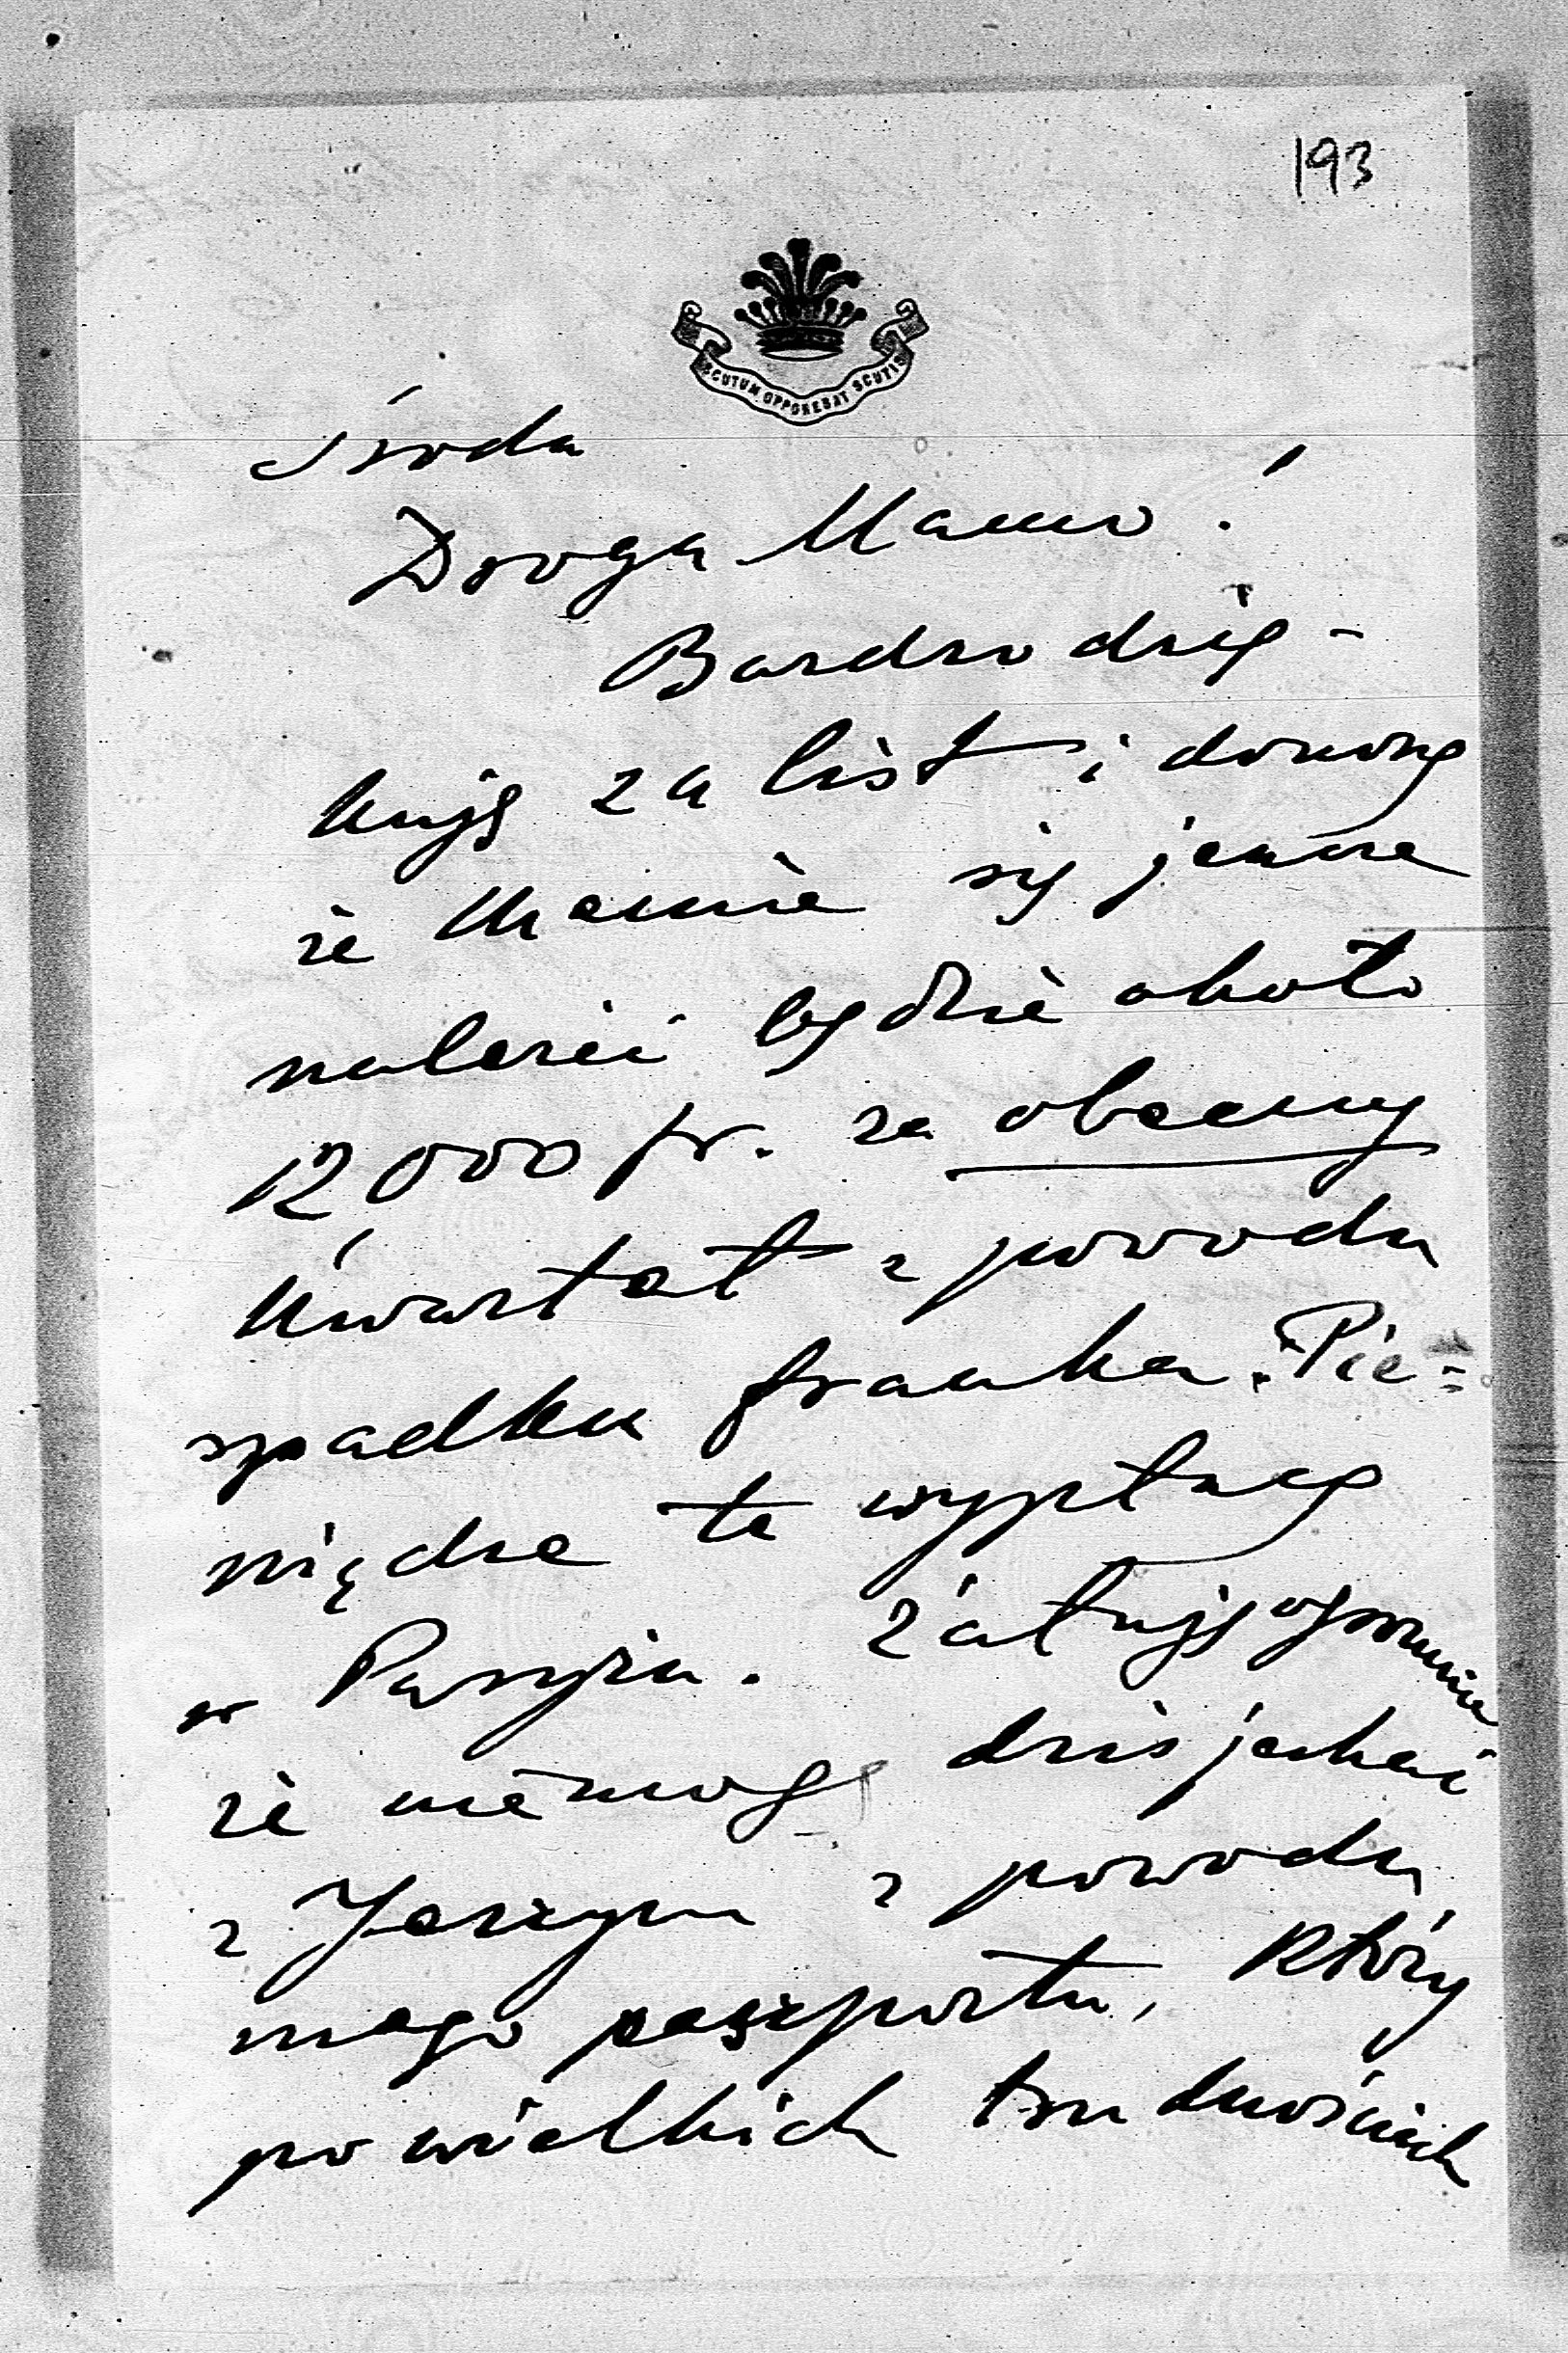 193
SCUTUM OPPOREBAT SCUTIS
środa
Droga Mamo!
Bardzo dzię-
kuję za list i donoszę
że Mamie się jeszcze
należeć będzie około
12000 fr. za obecny
kwartał z powodu
spadku franka. Pie=
niądze te wypłacę
w Paryżu. Żałuję ogromnie
że nie mogę dziś jechać
z Jerzym z powodu
mego paszportu, który
po wielkich trudnościach